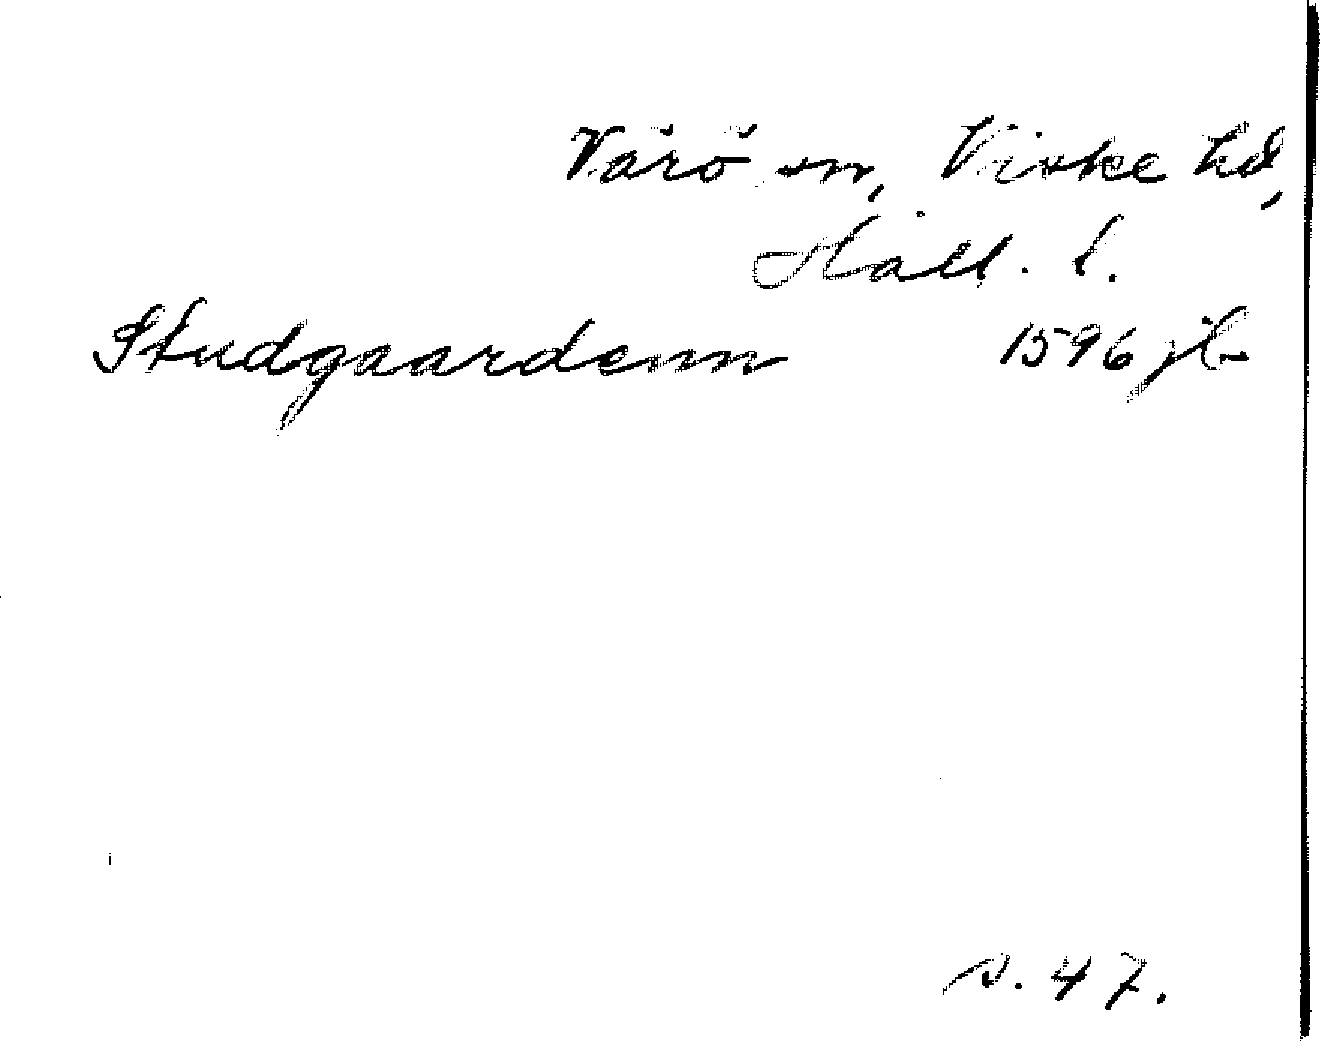 Värö sn, Viske hd,
Hall. l.
Studgaardenn 1596 jb
s. 47.